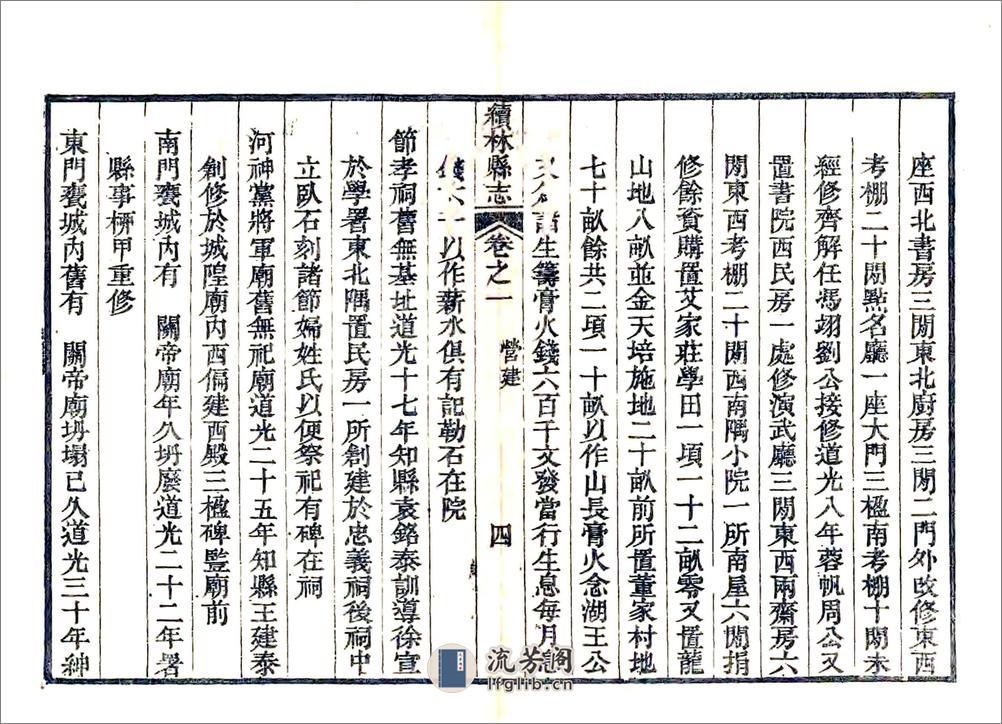 座西北書房三間東北廚房三間二門外改修東西
考棚二十間點名廳一座大門三楹南考棚十間未
經修齊解任馮翊劉公接修道光八年蓉帆周公又
置書院西民房一處修演武廳三間東西兩齋房六
間東西考棚二十間西南隅小院一所南屋六間捐
修餘資購置艾家莊學田一項一十二畝零又置龍
山地八畝並金天培施地二十畝前所置董家村地
七十畝餘共二項一十畝以作山長膏火念湖王公
又 諸生籌膏火錢六百千文發當行生息每月
以作薪水俱有記勒石在院
續林縣志 卷之一 營建 四
節孝祠舊無基址道光十七年知縣袁銘泰訓導徐宣
於學署東北隅置民房一所創建於忠義祠後祠中
立臥石刻諸節婦姓氏以便祭祀有碑在祠
河神黨將軍廟舊無祀廟道光二十五年知縣王建泰
創修於城隍廟内西偏建西殿三楹碑豎廟前
南門甕城内有 關帝廟年久坍廢道光二十二年署
縣事 甲重修
東門甕城内舊有 關帝廟坍塌已久道光三十年紳
流芳閣
lfglib.cn